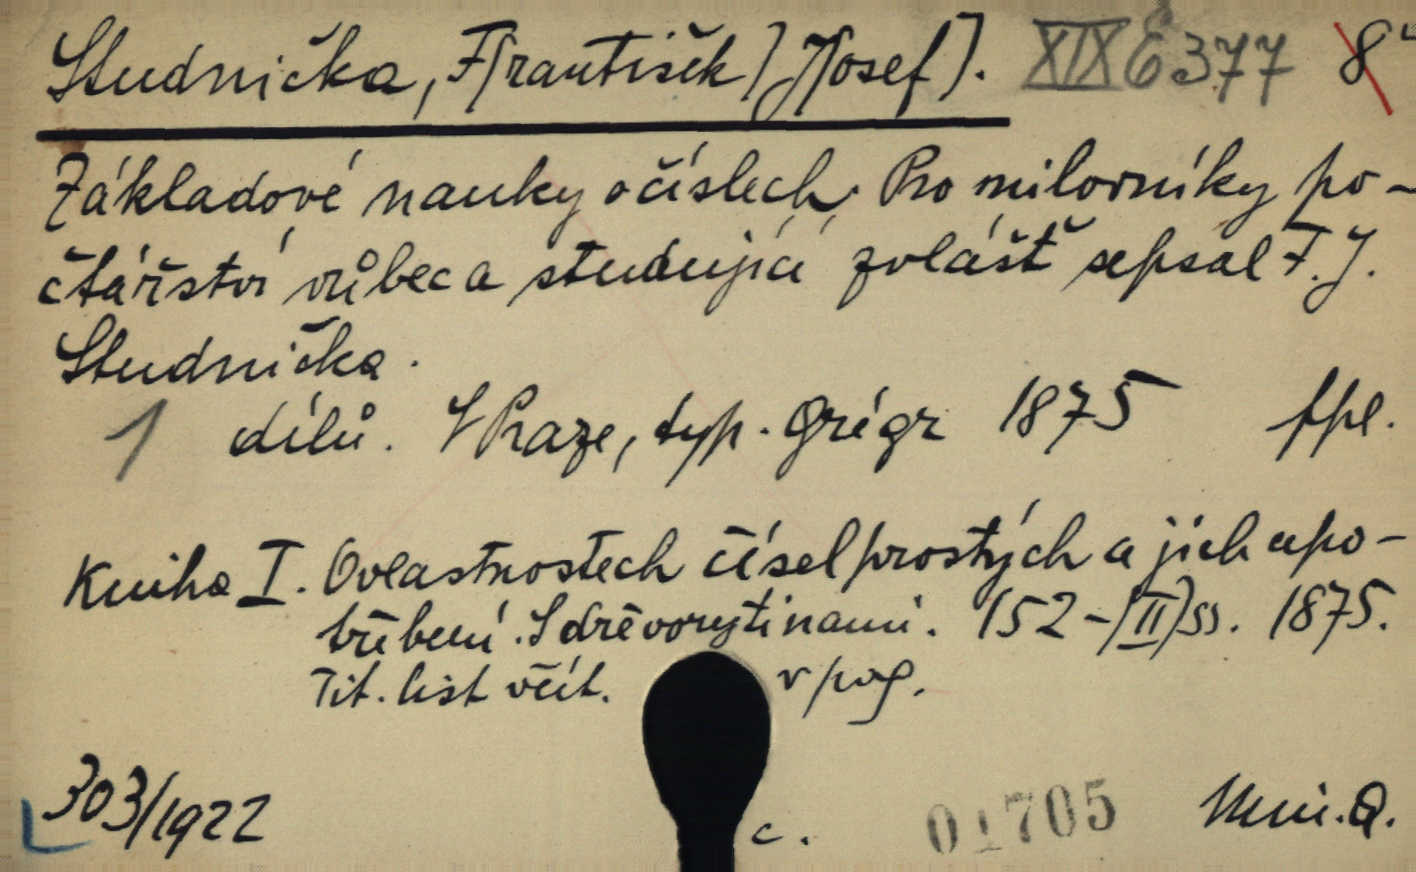 Studnička, F[rantišek] J[osef]. XIX E 377 8°
Základové nauky o číslech. Pro milovníky po-
čtářství vůbec a studující zvlášť sepsal F. J.
Studnička.
1 dílů. V Praze, typ. Grégr 1875 ppl.
Kniha I. O vlastnostech čísel prostých a jich upo-
třebení. S dřevorytinami. 152-[II] ss. 1875.
Tit. list včít. v pag.
303/1922 c. 01705 Mui. Q.